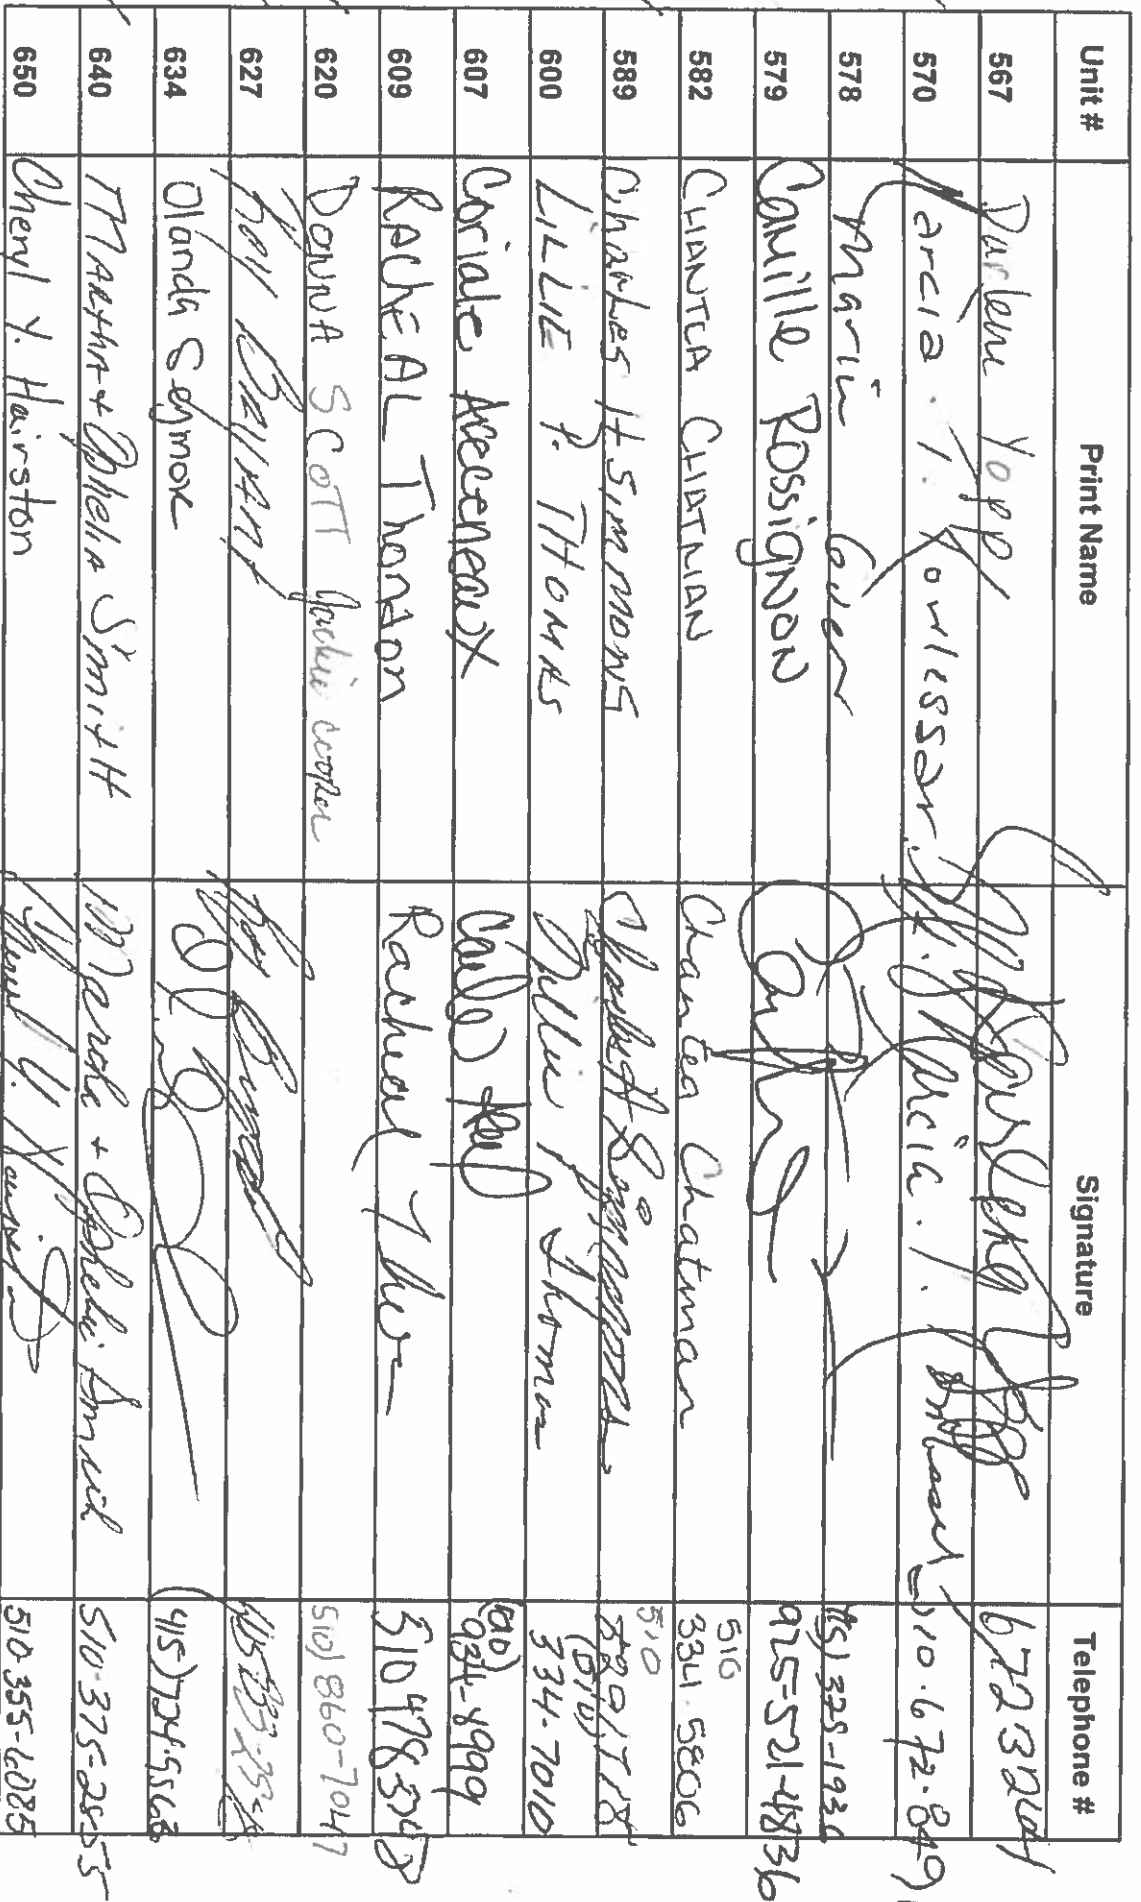 Unit # Print Name Signature Telephone #
567 Darlene Yopp 6723244
570 Marcia . 510.672.849
578 Marin 325-193
579 Camille Rossignon 925-521-4836
582 CHANTEA CHATMAN Chantea Chatman 510 334.5806
589 Charles H Simmons Charles H Simmons 510
600 LILLIE P. THOMAS Lillie P Thomas (510) 334-7010
607 Coriale Areceneaux 934-8999
609 RACHEAL Thonton Racheal 510 478
620 DONNA SCOTT Jackie cooper 510) 860-7047
627 Ray Bryant
634 Olanda Seymore 415) 724-5563
640 MARTHA + Ophelia SmitH Martha + Ophelia Smith 510-375-2555
650 Cheryl Y. Hairston Cheryl Y. Hairston 510 355-6085